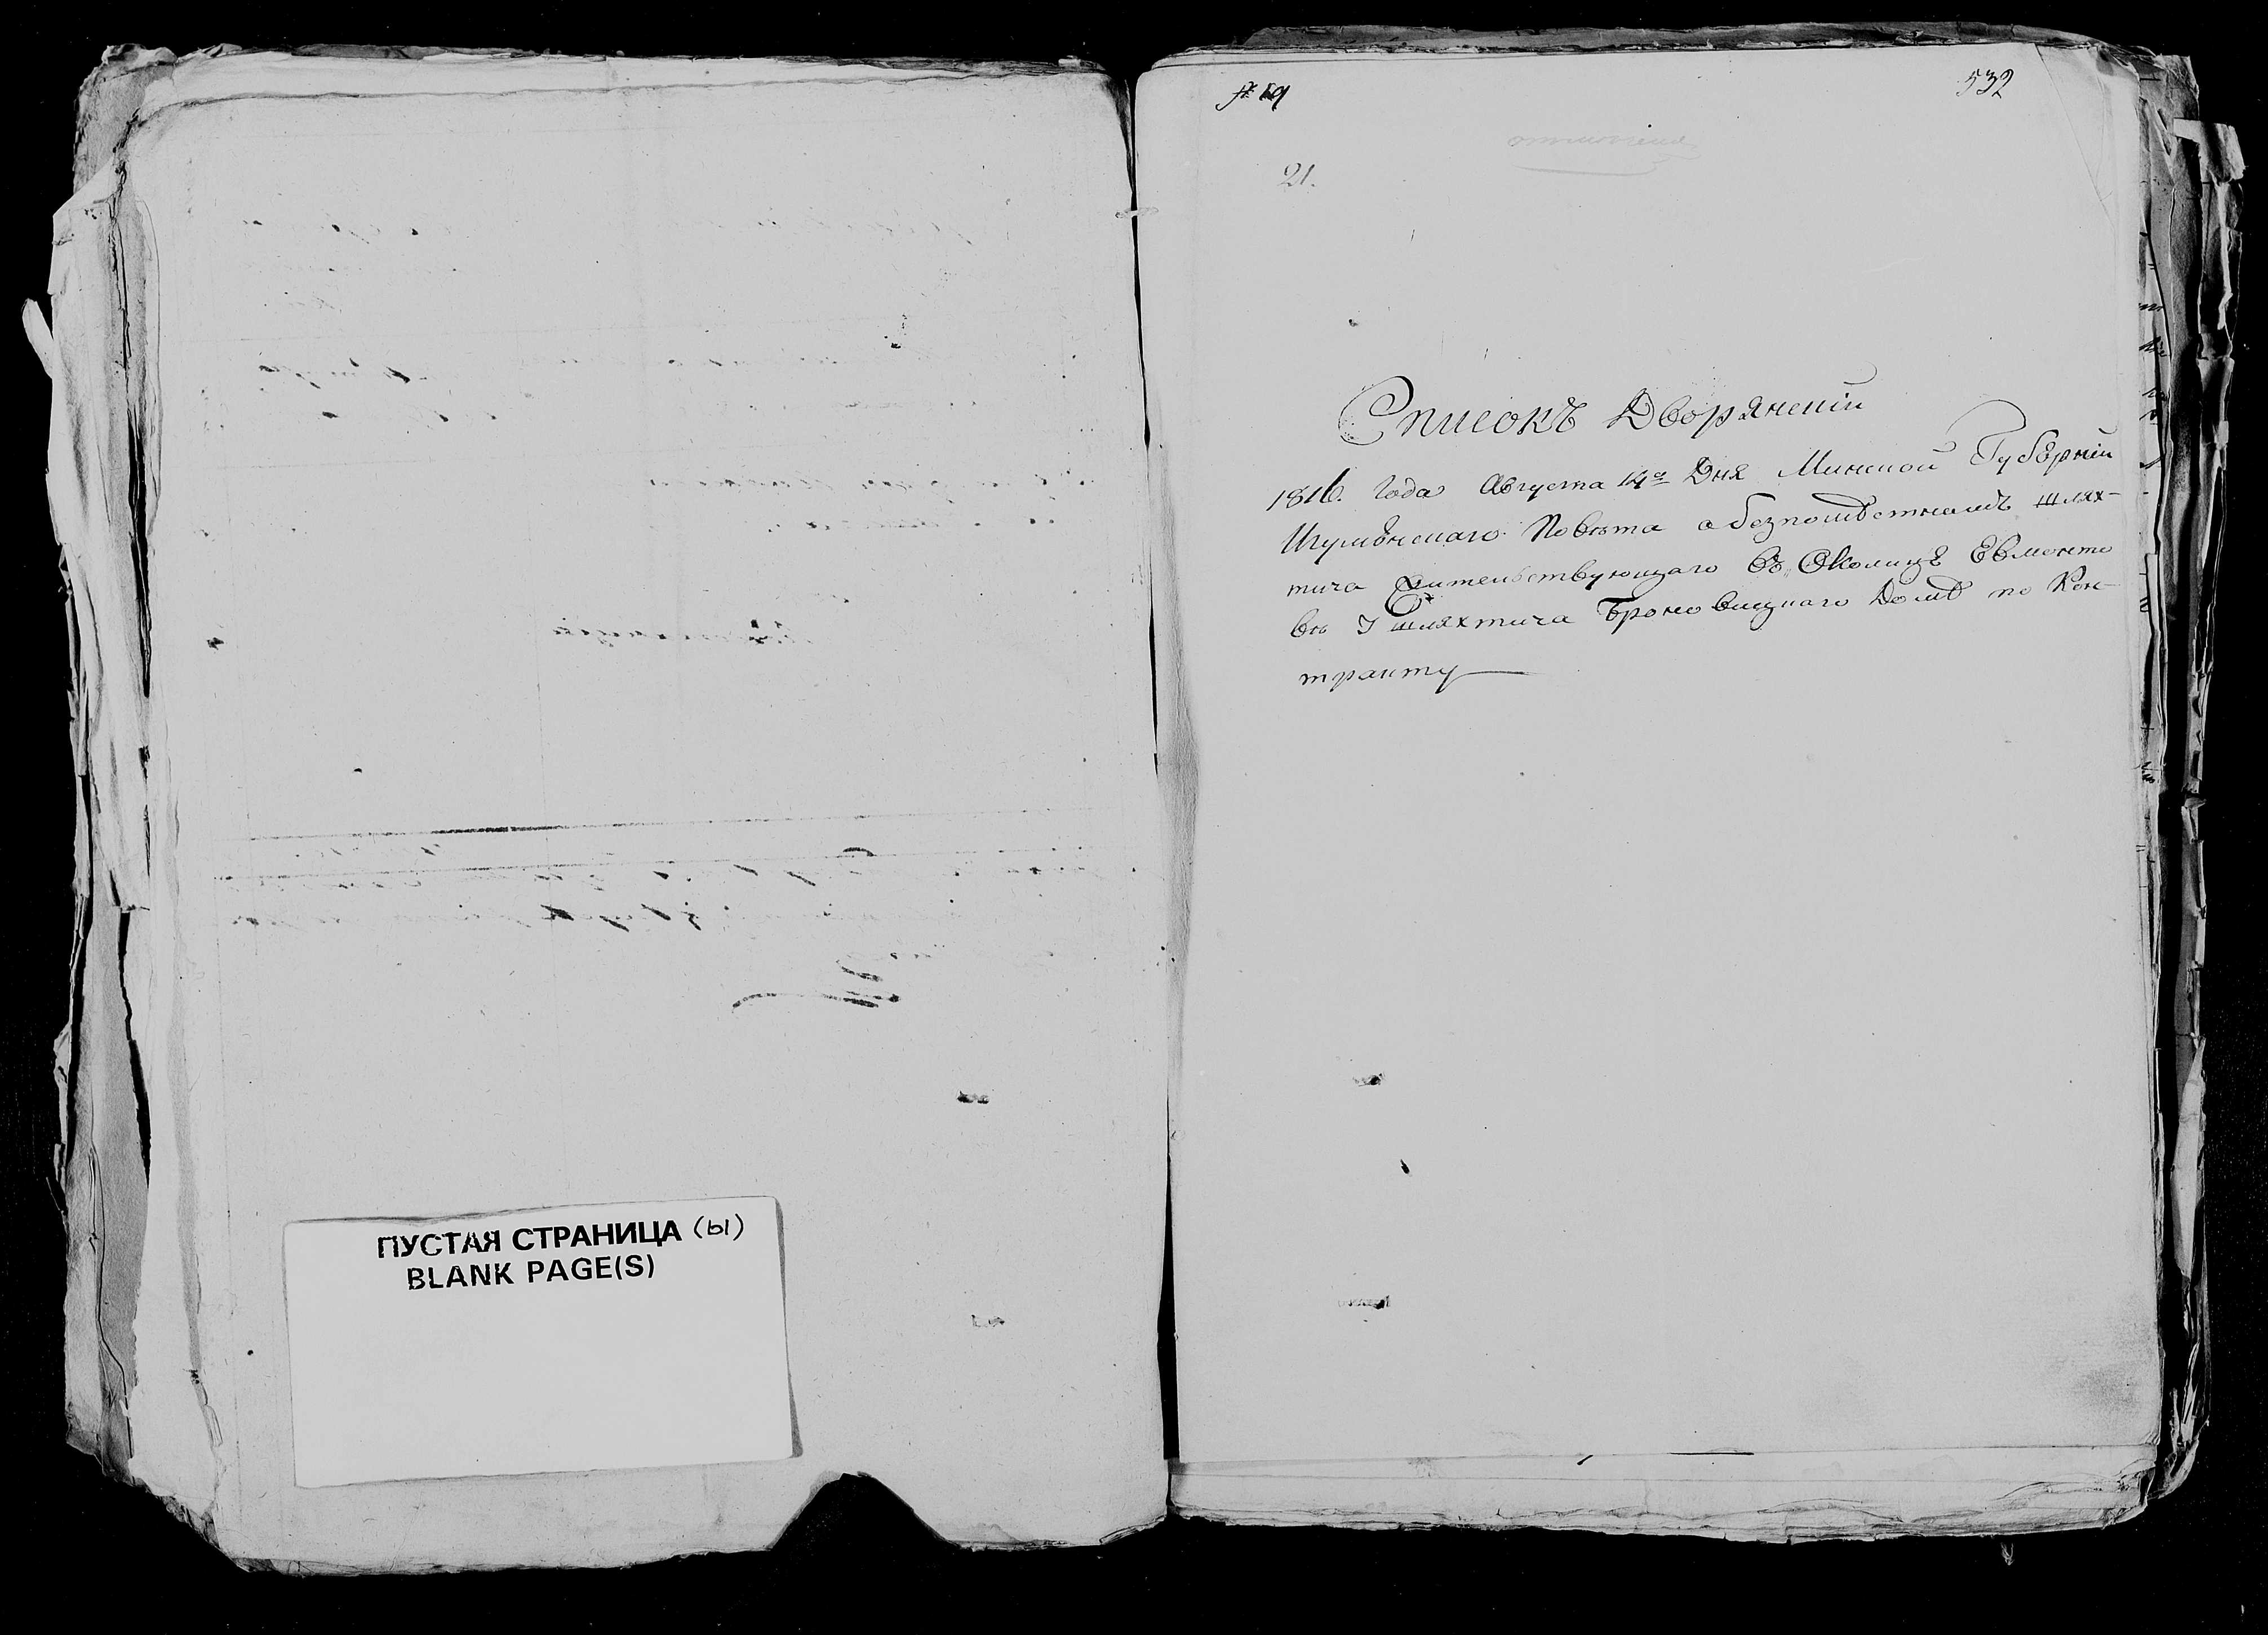 ПУСТАЯ СТРАНИЦА (ы)
BLANK PAGE(S)
532
21.
Списокъ Дворянскій
1816. Года Августа 14го Дня Минской Губерніи
Игумѣнскаго Повѣта о безпомѣстномъ шлях-
тича Жительствующаго Въ Околицѣ Евмонто
вѣ У шляхтича Броновицкаго Домѣ по Кон-
тракту